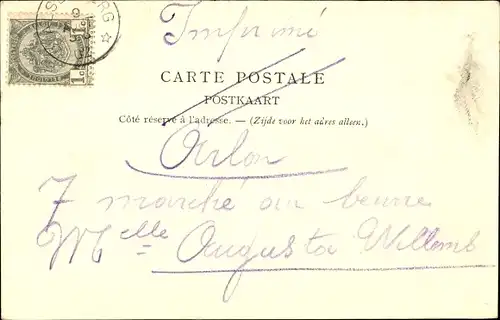 Imprimé
CARTE POSTALE
POSTKAART
Côté réservé à l'adresse. — (Zijde voor het adres alleen.)
Arlon
7 marché au beurre
Mlle Augusta Willems